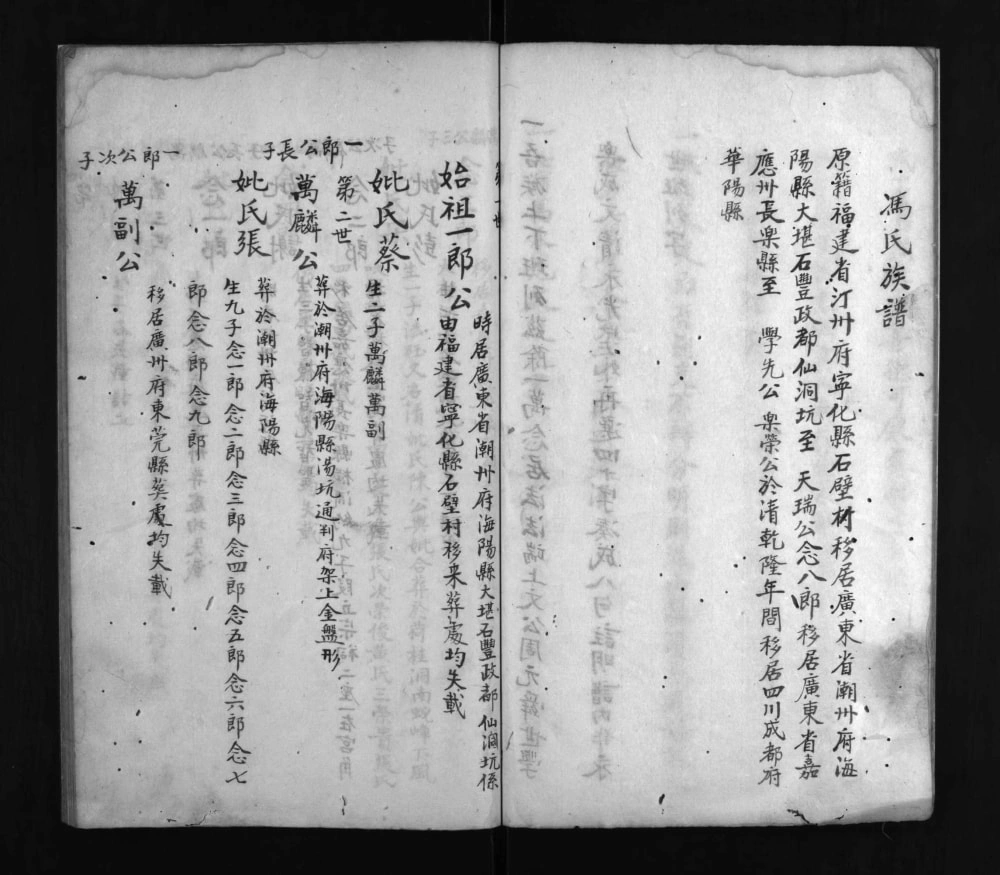 馮氏族譜
原籍福建省汀州府寧化縣石壁村移居廣東省潮州府海
陽縣大堪石豐政郡仙洞坑至 天瑞公念八郎移居廣東省嘉
應州長楽縣至 學先公 楽榮公於清乾隆年間移居四川成都府
華陽縣
第一世
時居廣東省潮州府海陽縣大堪石豐政郡仙洞坑係
始祖一郎公由福建省寧化縣石壁村移來葬處均失載
妣氏蔡 生二子萬麟萬副
第二世
一郎公長子
萬麟公 葬於潮州府海陽縣湯坑通判府架上金盤形
妣氏張 葬於潮州府海陽縣
生九子念一郎念二郎念三郎念四郎念五郎念六郎念七
郎念八郎念九郎
一郎公次子
萬副公 移居廣州府東莞縣葬處均失載